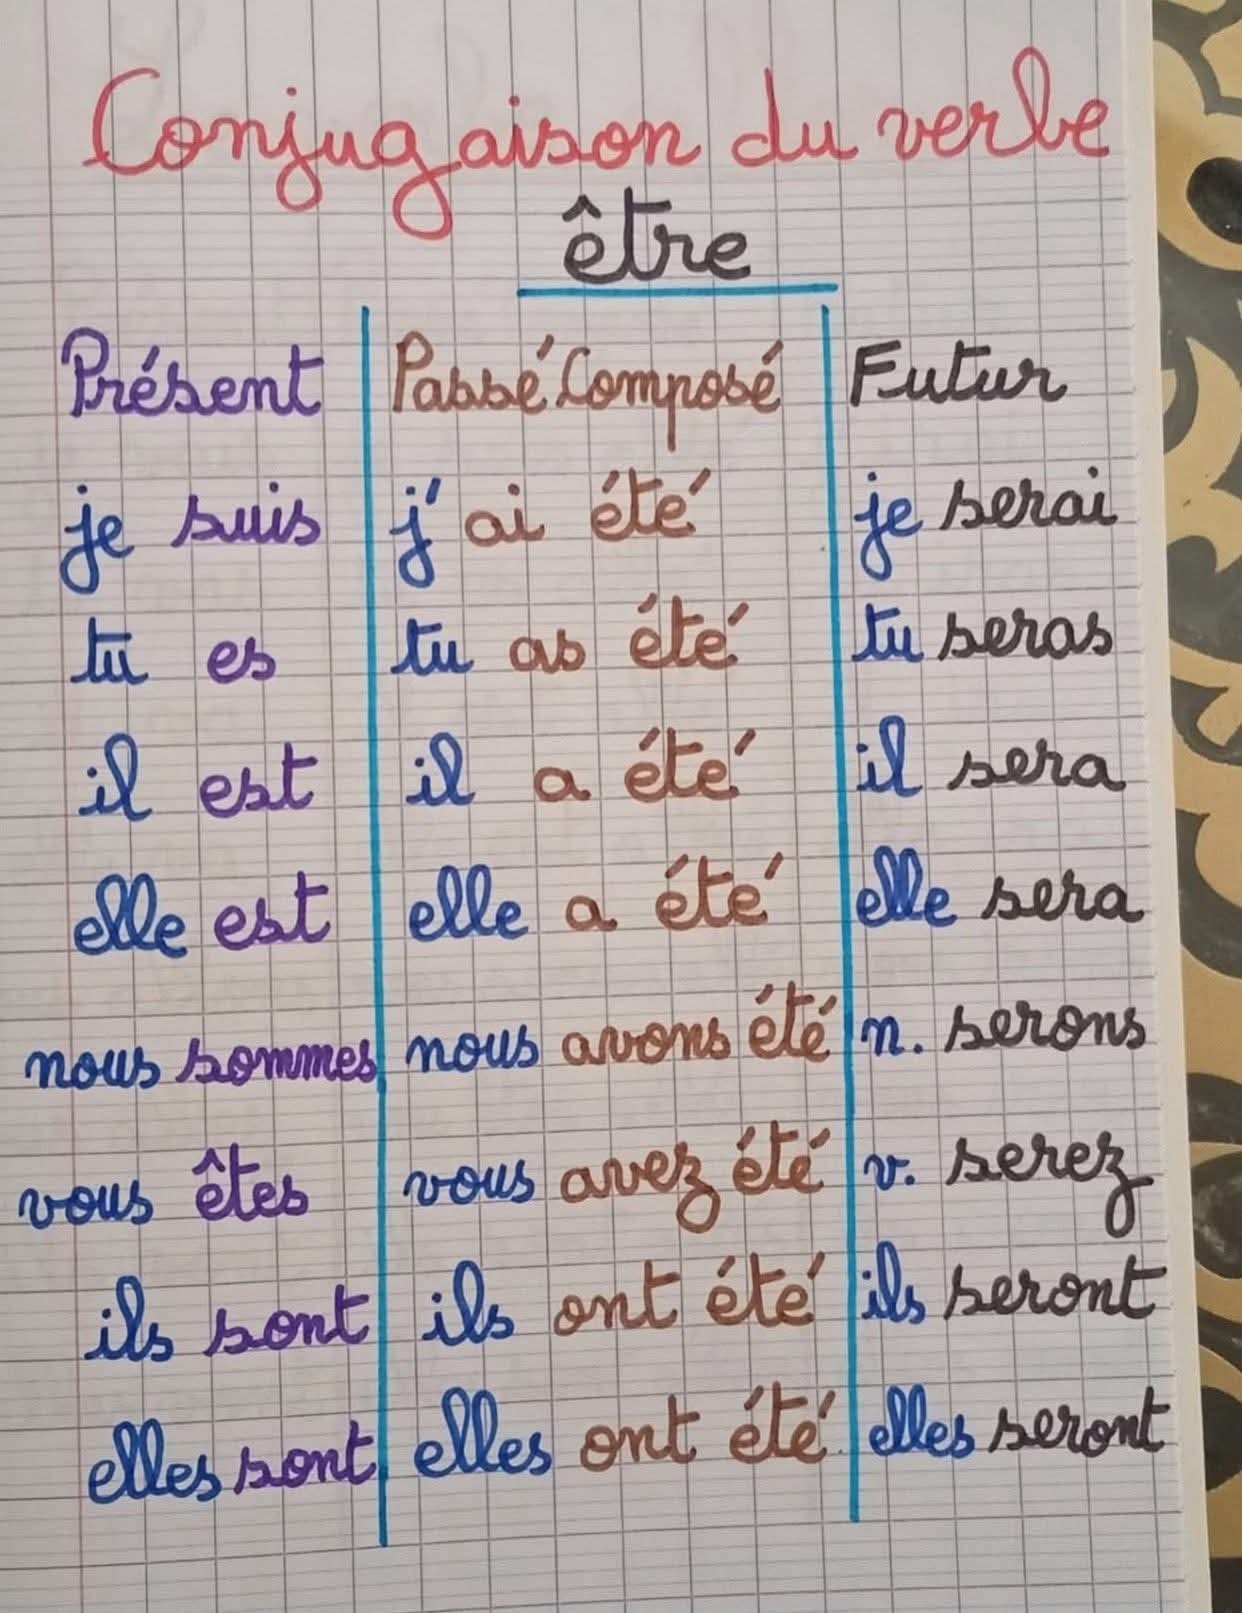 Conjugaison du verbe
être
Présent Passé Composé Futur
je suis j'ai été je serai
tu es tu as été tu seras
il est il a été il sera
elle est elle a été elle sera
nous sommes nous avons été n. serons
vous êtes vous avez été v. serez
ils sont ils ont été ils seront
elles sont elles ont été elles seront